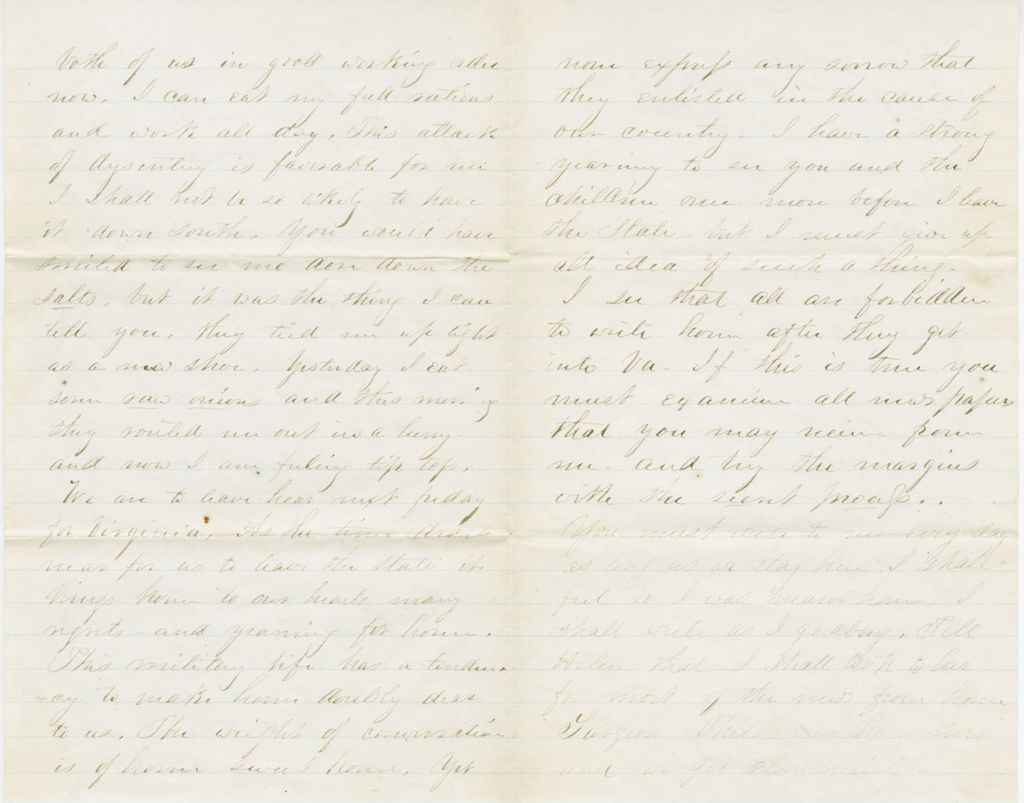 both of us in good working order
now. I can eat my full rations
and work all day. This attack
of dysentery is favorable for me
I shall not be so likely to have
it down South. You would have
smiled to see me down the
salts, but it was the thing I can
tell you. they tied me up tight
as a new shoe. Yesterday I eat
some raw onions and this morning
they routed me out in a hurry
and now I am feeling tip top.
We are to leave hear next friday
for Virginia. As the time draws
near for us to leave the State it
brings home to our hearts many
regrets and yearning for home.
This military life has a tenden-
-cy to make home doubly dear
to us. The weight of conversation
is of home sweet home. Yet
none express any sorrow that
they enlisted in the cause of
our country. I have a strong
yearning to see you and the
children once more before I leave
the State but I must give up
all idea of such a thing.
I see that all are forbidden
to write home after they get
into Va. If this is true you
must examine all news papers
that you may receive from
me. and try the margins
with the secret process..
You must write to me every day
as long as we stay here. I shall
feel as I was nearer home. I
shall write as I go along. Tell
Helen that I shall look to her
for most of the news from home
Surgeon is here now
and we get along nicely -